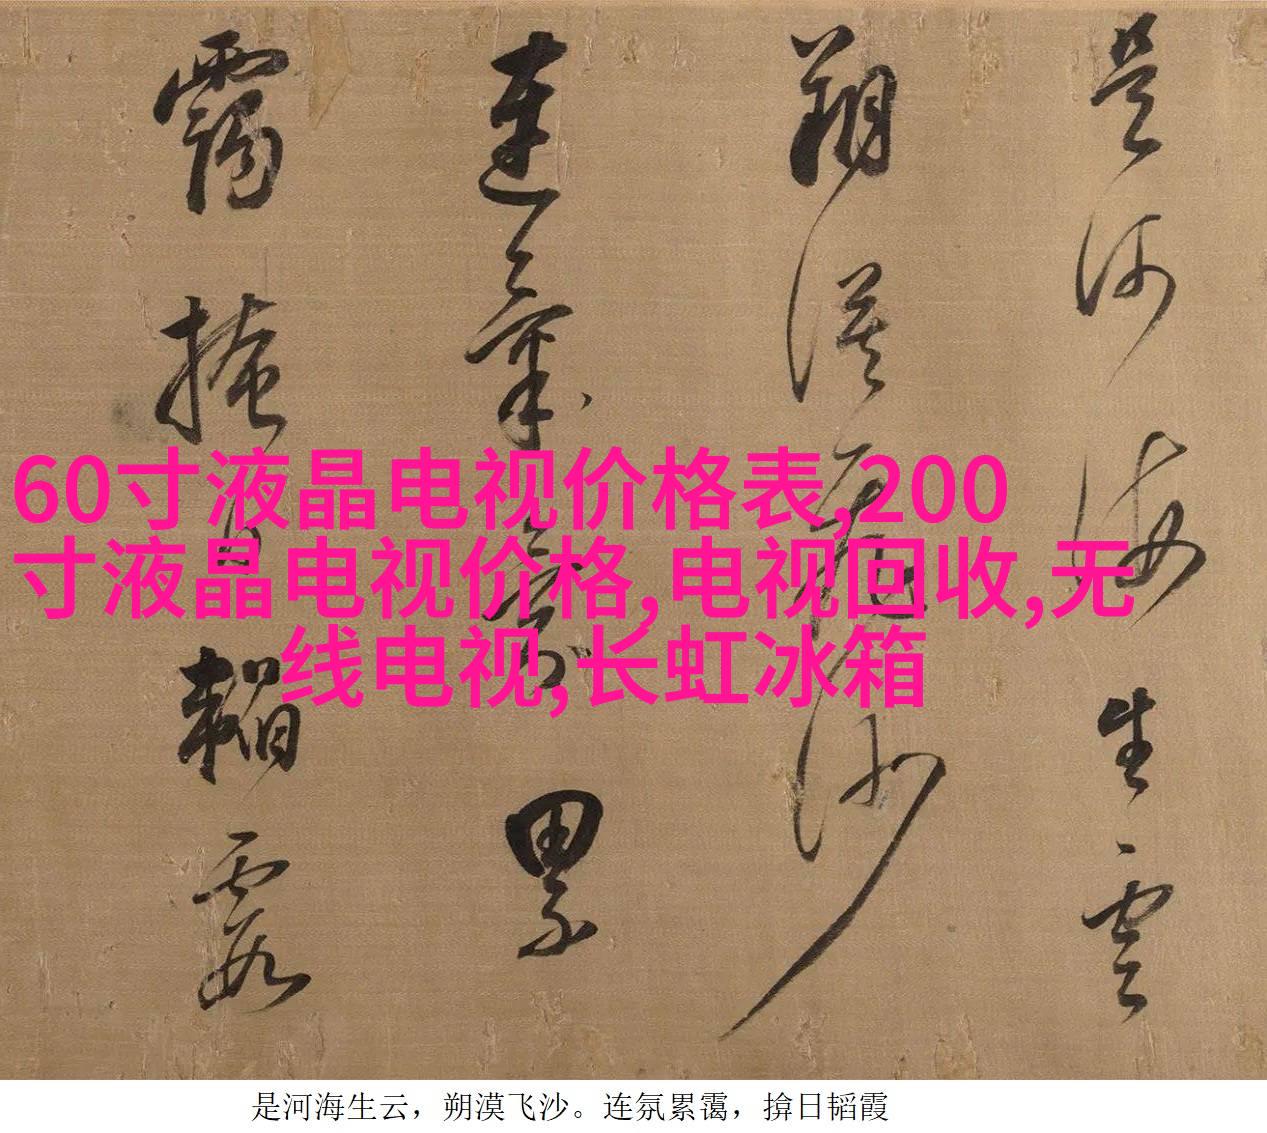 是河海生雲
朔漠飛沙
連氛累
靄掩日韜霞
60寸液晶电视价格表,200
寸液晶电视价格,电视回收,无
线电视,长虹冰箱
是河海生云，朔漠飞沙。连氛累霭，揜日韬霞